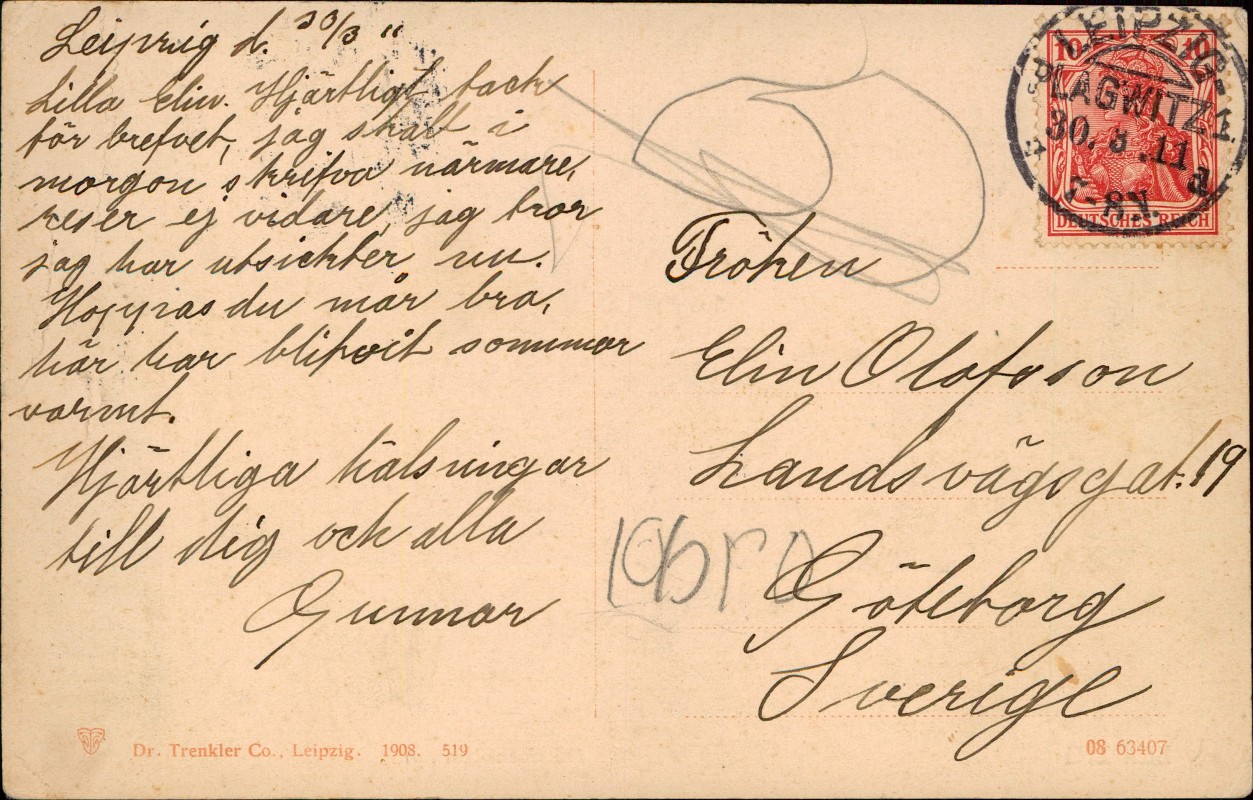 Leipzig d. 30/3 11
Lilla Elin. Hjärtligt tack
för brefvet, jag skall i
morgon skrifva närmare,
reser ej vidare, jag tror
jag har utsickter nu.
Hoppas du mår bra,
här har blifvit sommar
varmt.
Hjärtliga hälsningar
till dig och alla
Gunnar
LEIPZIG-
PLAGWITZ 1.
30. 3 .11
8 V.
d
10 10
DEUTSCHES REICH
Fröken
Elin Olofsson
Landsvägsgat. 19
Göteborg
Sverige
Dr. Trenkler Co., Leipzig. 1908. 519
08 63407